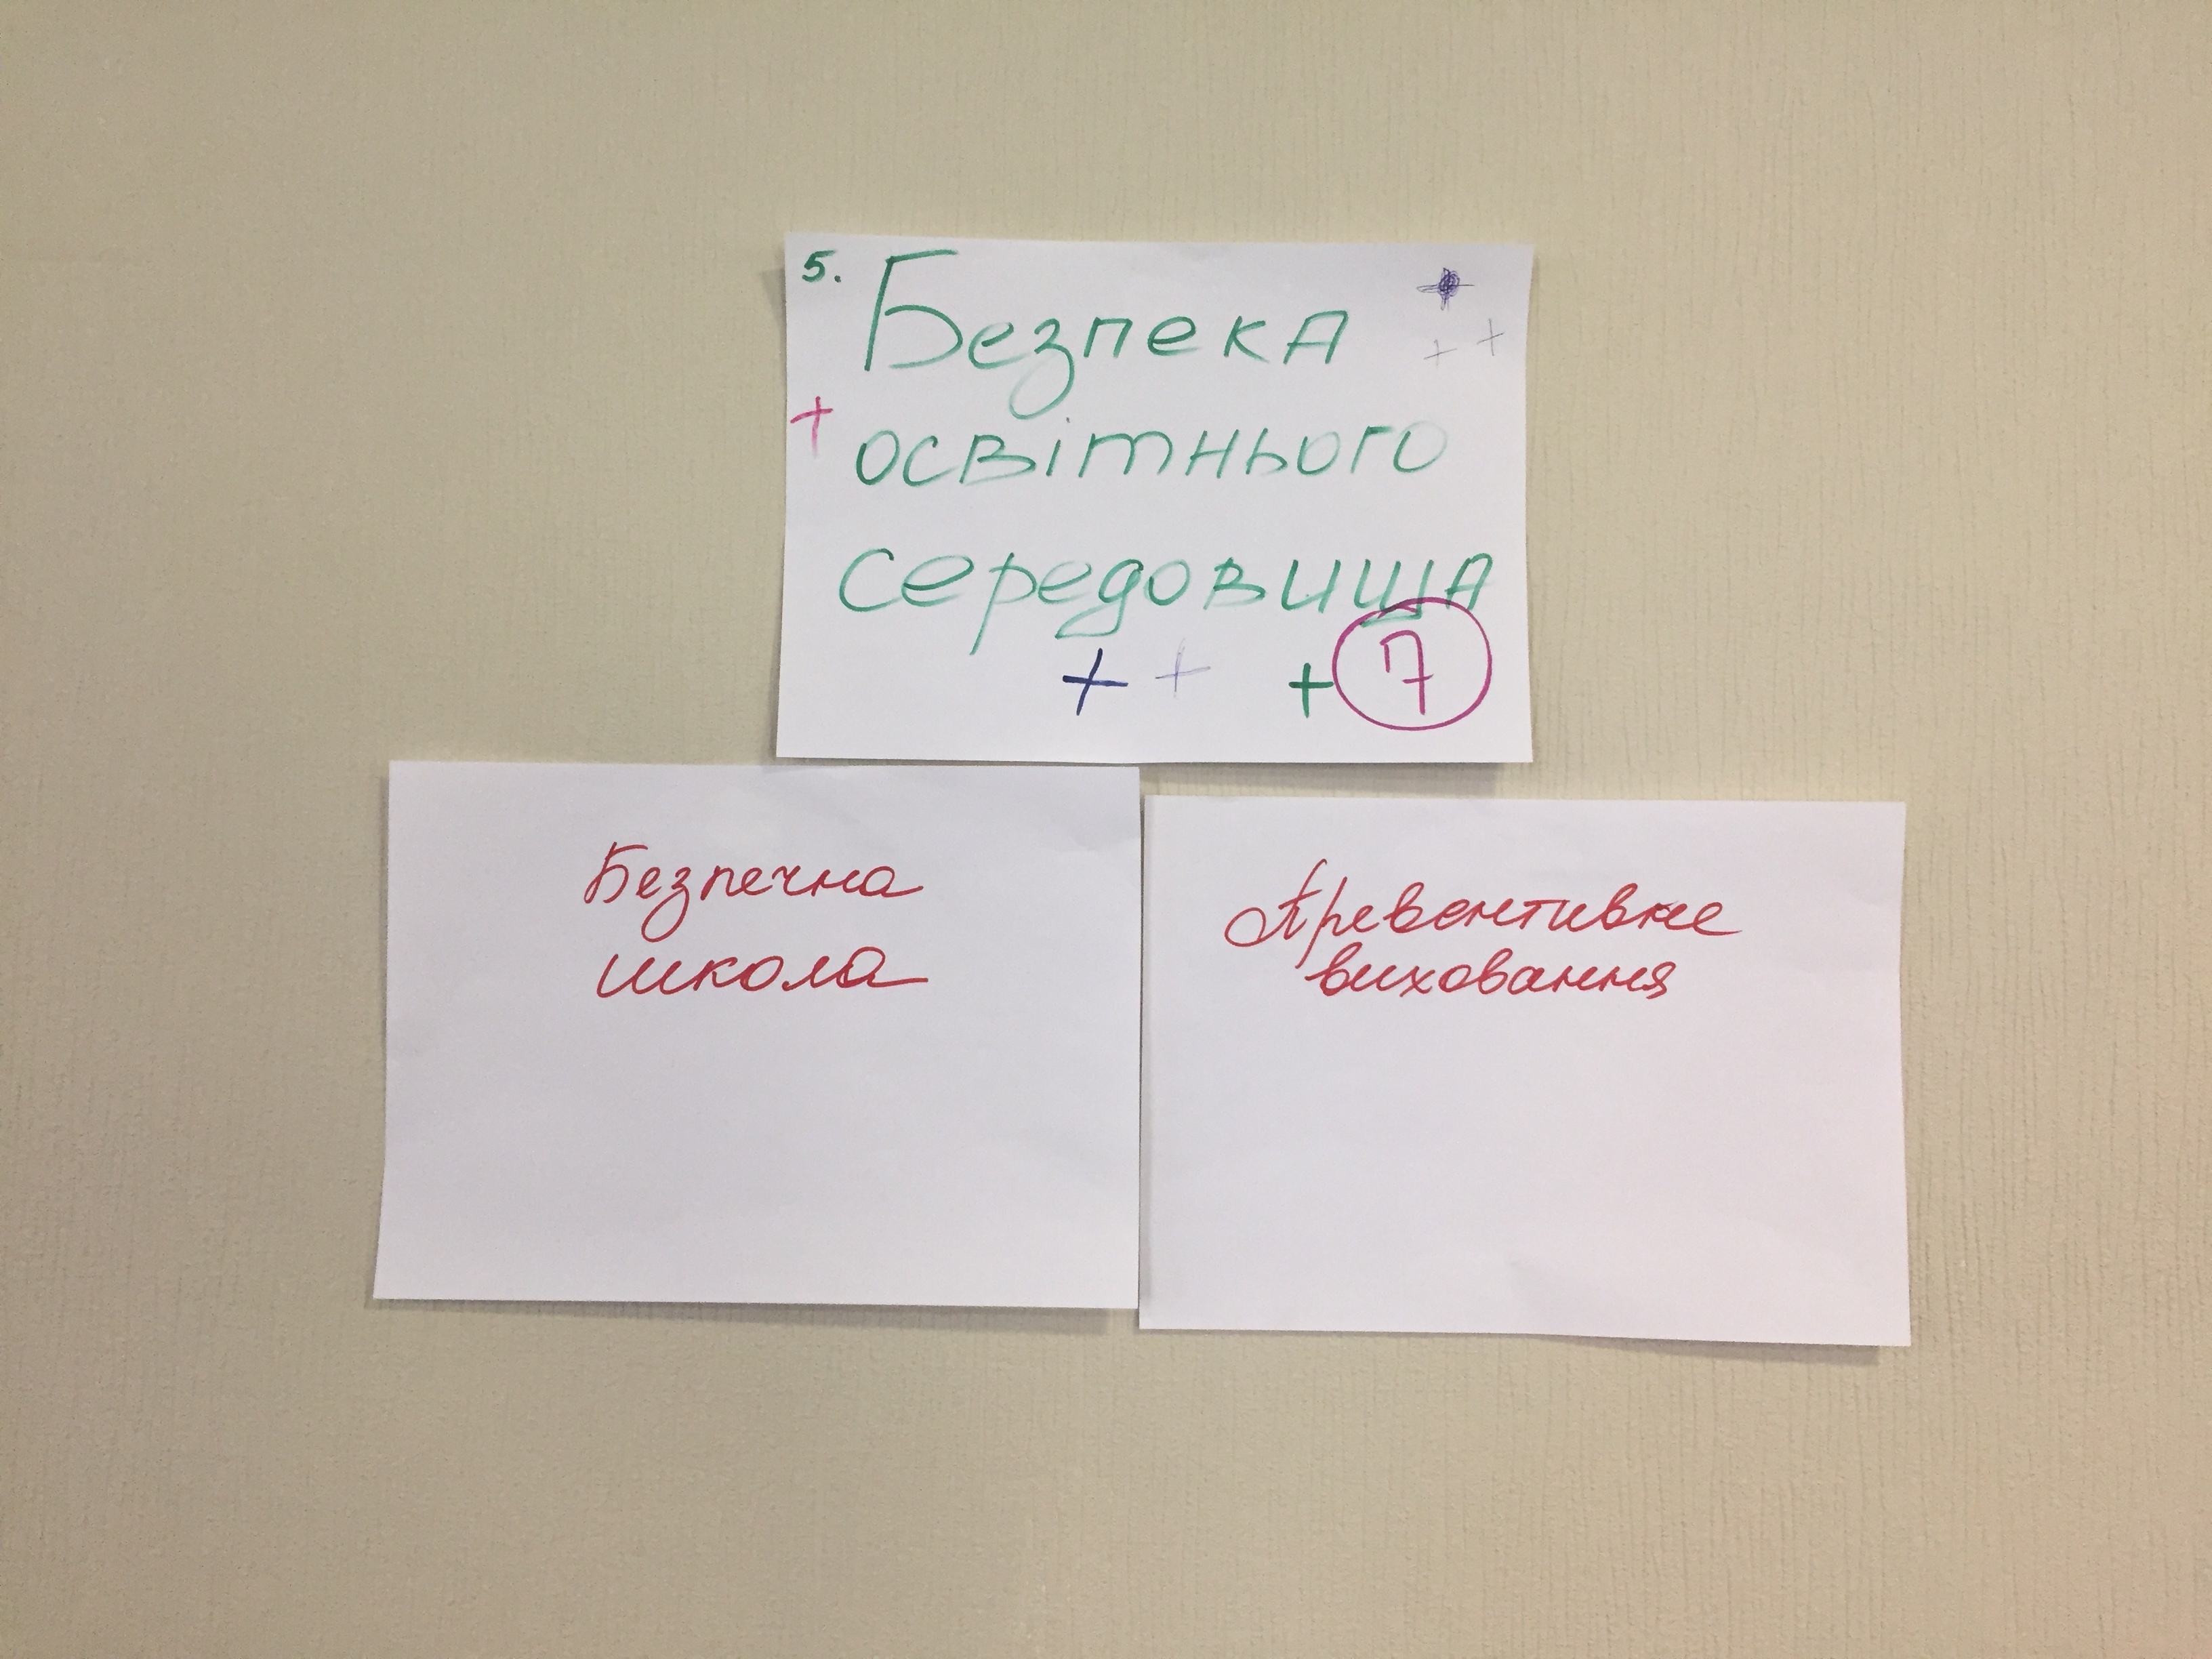 5. Безпека
освітнього
середовища
+ + + 7
Безпечна
школа
Превентивне
виховання